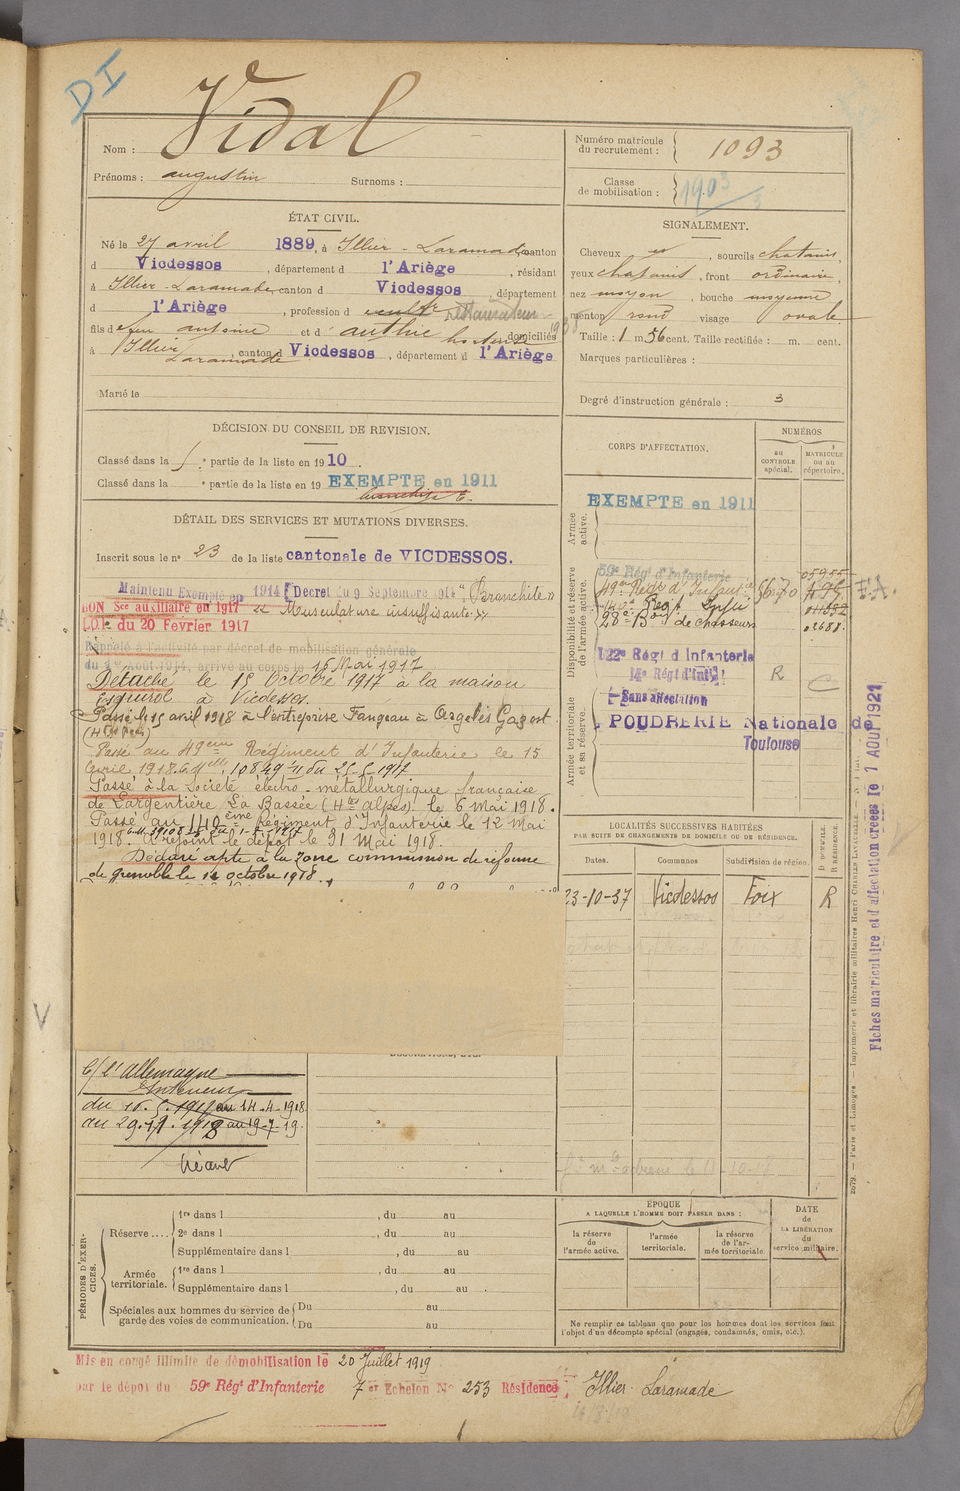 DI
Nom : Vidal
Prénoms : augustin Surnoms :
Numéro matricule du recrutement : 1093
Classe de mobilisation : 1903
ÉTAT CIVIL.
Né le 27 avril 1889, à Illier-Laramade canton
d Vicdessos, département d l'Ariège, résidant
à Illier-Laramade canton d Vicdessos, département
d l'Ariège, profession d
fils de feu antoine et d' authié domiciliés
à Illier Laramade canton d Vicdessos, département d l'Ariège
Marié le
SIGNALEMENT.
Cheveux, sourcils chatains,
yeux chatains, front ordinaire,
nez moyen, bouche moyenne
menton rond visage ovale
Taille : 1 m 56 cent. Taille rectifiée : m. cent.
Marques particulières :
Degré d'instruction générale : 3
DÉCISION DU CONSEIL DE REVISION.
Classé dans la 5e partie de la liste en 1910.
Classé dans la e partie de la liste en 19 EXEMPTE en 1911
DÉTAIL DES SERVICES ET MUTATIONS DIVERSES.
Inscrit sous le no 23 de la liste cantonale de VICDESSOS.
Maintenu Exempté en 1914 [Decret du 9 Septembre 1914 "Bronchite"
BON Sce auxiliaire en 1917 "Musculature insuffisante"
du 20 Fevrier 1917
Rappelé à l'activité par décret de mobilisation générale
du 1er Août 1914, arrivé au corps le 16 Mai 1917
Détaché le 15 Octobre 1917 à la maison
Esquirol à Vicdessos.
Passé le 15 avril 1918 à l'entreprise Fangeau à Argelès Gazost
Passé au 49ème Régiment d'Infanterie le 15
Avril 1918.
Passé à la Société électro-métallurgique française
de Largentière La Bassée (Htes alpes) le 6 Mai 1918.
Passé au 140ème Régiment d'Infanterie le 12 Mai
1918. A rejoint le dépôt le 31 Mai 1918.
Déclaré apte à la zone commission de réforme
de grenoble le 12 octobre 1918.
CORPS D'AFFECTATION.
NUMÉROS
AU CONTROLE spécial.
MATRICULE ou au répertoire.
Armée active.
EXEMPTE en 1911
Disponibilité et réserve de l'armée active.
59e Régt d'Infanterie
49e Régt d'Infantie
140e Regt Infie
28e Bon de chasseurs
Armée territoriale et sa réserve.
122e Régt d Infanterie R
14e Régt d'Infie C
Sans affectation
POUDRERIE Nationale de
Toulouse
LOCALITÉS SUCCESSIVES HABITÉES
PAR SUITE DE CHANGEMENTS DE DOMICILE OU DE RÉSIDENCE.
Dates. Communes Subdivision de région. D DOMICILE. R RÉSIDENCE.
23-10-37 Vicdessos Foix R
Fiches matriculaire et d affectation créées le 1 AOUT 1921
Paris et Limoges — Imprimerie et librairie militaires Henri CHARLES-LAVAUZELLE.
V
C/ l'allemagne
Intérieur
du 16.5.1917 au 14-4-1918
au 29.11.1918 au 19-7-19.
Néant
PÉRIODES D'EXERCICES.
Réserve.... 1re dans l , du au
2e dans l , du au
Supplémentaire dans l , du au
Armée territoriale. 1re dans l , du au
Supplémentaire dans l , du au
Spéciales aux hommes du service de garde des voies de communication. Du au
Du au
ÉPOQUE
A LAQUELLE L'HOMME DOIT PASSER DANS :
la réserve de l'armée active.
l'armée territoriale.
la réserve de l'armée territoriale.
DATE DE LA LIBÉRATION du service militaire.
Ne remplir ce tableau que pour les hommes dont les services font
l'objet d'un décompte spécial (engagés, condamnés, omis, etc.).
Mis en congé illimité de démobilisation le 20 Juillet 1919
par le dépôt du 59e Régt d'Infanterie 7er Echelon No 253 Résidence Illier-Laramade